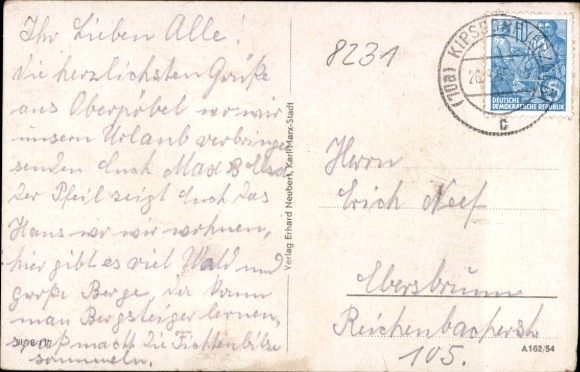 Ihr Lieben Alle!
Die herzlichsten Grüße
aus Oberpöbel wo wir
unsern Urlaub verbringen
senden Euch Max & Elsa
Der Pfeil zeigt Euch das
Haus wo wir wohnen,
hier gibt es viel Wald und
große Berge, da kann
man Bergsteiger lernen,
spaß macht die Fichtenbütze
sammeln.
Verlag Erhard Neubert, Karl-Marx-Stadt
8231
(10a) KIPSDORF
c
DEUTSCHE
DEMOKRATISCHE REPUBLIK
5
Herrn
Erich Neef
Ebersbrunn
Reichenbacherstr.
105.
A 162/54